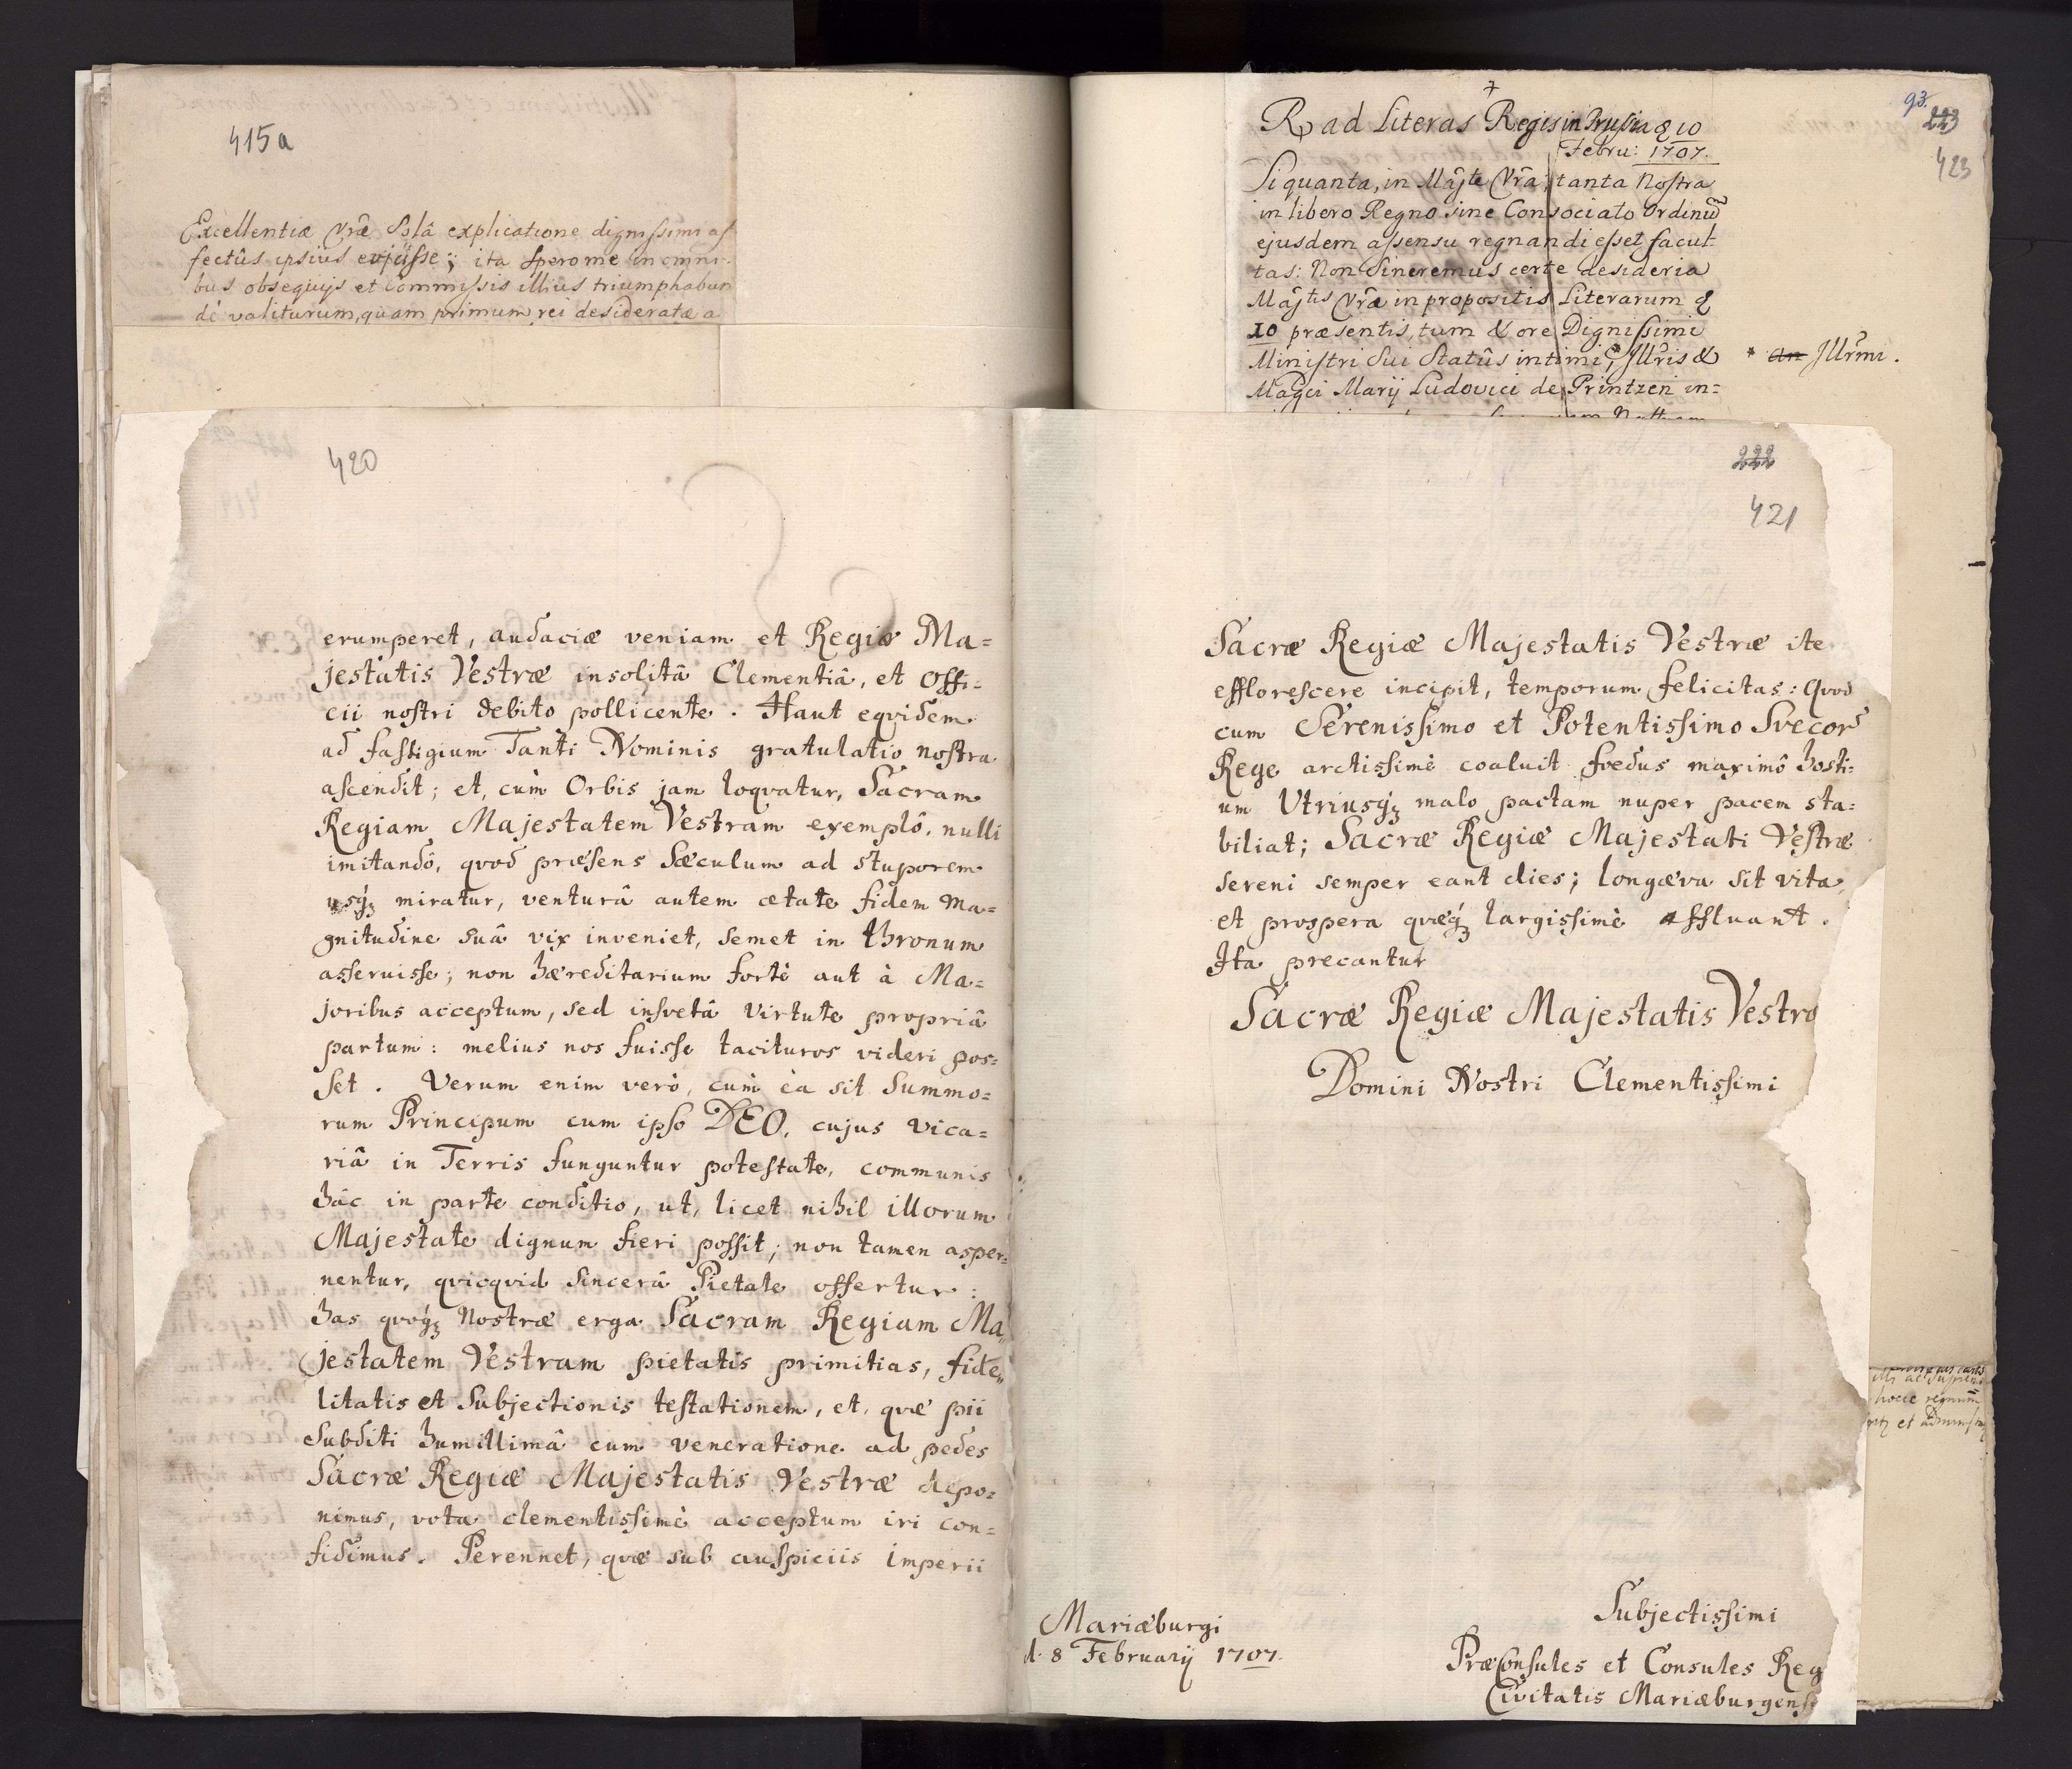 415a
Excellentiæ Vræ Solâ explicatione dignissimi af
fectûs ipsius
ita spero me in omni
bus obsequijs et Commissis illius triumphabun
dè valiturum, quam primum rei desideratæ a
93.
223
423
Rp ad Literas Regis in Prussia d 10
Febru: 1707.
Si quanta, in Majte Vrâ, tanta Nostra
in libero Regno sine Consociato Ordinũ
ejusdem assensu regnandi esset facul-
tas: Non Sineremus certe desideria
Majtis Vræ in propositis Literarum d
10 præsentis, tum & ore Dignissimi
Ministri Sui Statûs intimi, Illris &
* an Illrmi.
Magci Marij Ludovici de Printzen in=
420
erumperet, audaciæ veniam et Regiæ Ma=
jestatis Vestræ insolitâ Clementiâ, et Offi=
cii nostri debito pollicente. Haut eqvidem
ad fastigium Tanti Nominis gratulatio nostra
ascendit; et, cùm Orbis jam loqvatur, Sacram
Regiam Majestatem Vestram exemplô, nulli
imitandô, qvod præsens Sæculum ad stuporem
usq́ꝫ miratur, venturâ autem ætate fidem Ma=
gnitudine suâ vix inveniet, semet in thronum
asseruisse; non hæreditarium fortè aut à Ma=
joribus acceptum, sed insvetâ Virtute propriâ
partum: melius nos fuisse tacituros videri pos=
set. Verum enim verò, cum ea sit Summo=
rum Principum cum ipso DEO, cujus Vica=
riâ in Terris funguntur potestate, communis
hâc in parte conditio, ut, licet nihil illorum
Majestate dignum fieri possit; non tamen asper=
nentur, qvicqvid Sincerâ Pietate offertur:
has qvoq́ꝫ Nostræ erga Sacram Regiam Ma„
jestatem Vestram pietatis primitias, fide„
litatis et Subjectionis testationem, et, qvæ pii
Subditi humillimâ cum veneratione ad pedes
Sacræ Regiæ Majestatis Vestræ depo=
nimus, vota clementissimè acceptum iri con=
fidimus. Perennet, qvæ sub auspiciis imperii
222
421
Sacræ Regiæ Majestatis Vestræ ite
efflorescere incipit, temporum felicitas: Qvod
cum Serenissimo et Potentissimo Svecor
Rege arctissimè coaluit foedus maximô hosti=
um Utriusq́ꝫ malo pactam nuper pacem sta=
biliat; Sacræ Regiæ Majestati Vestræ
sereni semper eant dies; longæva sit vita,
et prospera qvæq́ꝫ largissimè affluant.
Ita precantur
Sacræ Regiæ Majestatis Vestræ
Domini Nostri Clementissimi
hocce regnum
et administ
Mariæburgi
d. 8 February 1707.
Subjectissimi
PræConsules et Consules Reg
Civitatis Mariæburgens